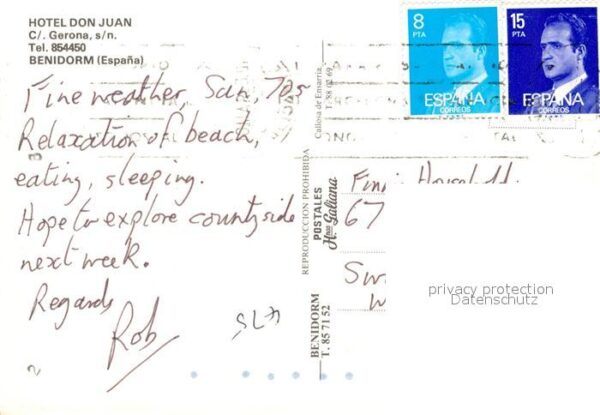 HOTEL DON JUAN
C/. Gerona, s/n.
Tel. 854450
BENIDORM (España)
Fine weather, Sun, 70s
Relaxation of beach,
eating, sleeping.
Hope to explore countryside
next week.
Regards
Rob
REPRODUCCION PROHIBIDA
POSTALES
Hnos Galiana
BENIDORM
T. 85 71 52
8
PTA
ESPAÑA
CORREOS
15
PTA
ESPAÑA
CORREOS
67
privacy protection
Datenschutz